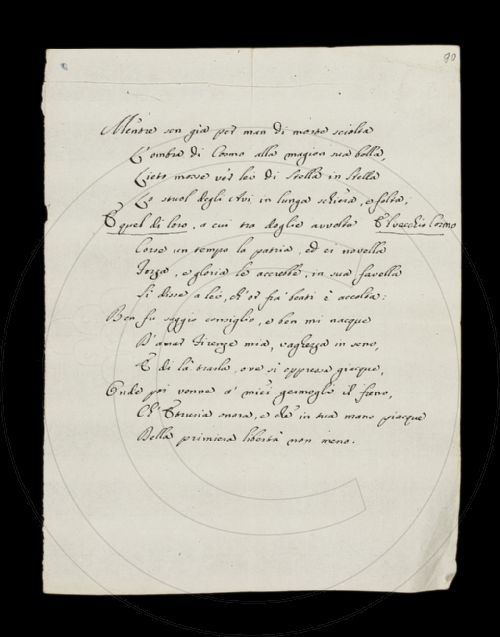 90
Mentre sen già per man di morte sciolta
L'ombra di Cosmo alla magion sua bella,
Lieto mosse vér lei di Stella in Stella
Lo stuol degli Avi in lunga schiera, e folta;
E quel di loro, a cui tra doglie avvolta E'l vecchio Cosmo
Corse un tempo la patria, ed ei novella
Forza, e gloria le accrebbe, in sua favella
Sì disse a lei, ch'or fra' beati è accolta:
Ben fu saggio consiglio, e ben mi nacque
D'amar Firenze mia, vaghezza in seno,
E di là trarla, ove sì oppressa giacque,
Onde poi venne a' miei germogli il freno,
Ch' Etruria onora, e che in tua mano piacque
Della primiera libertà non meno.